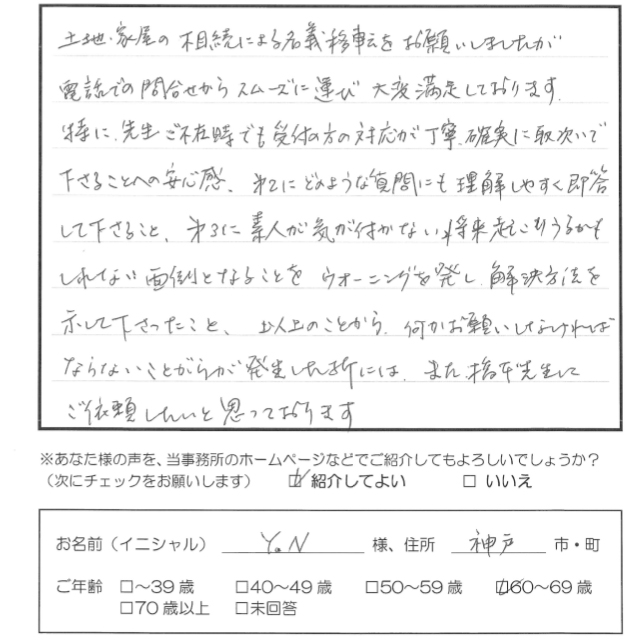 土地・家屋の相続による名義移転をお願いしましたが
電話での問合せからスムーズに運び大変満足しております。
特に、先生ご不在時でも受付の方の対応が丁寧、確実に取次いで
下さることへの安心感、第2にどのような質問にも理解しやすく即答
して下さること、第3に素人が気が付かない、将来起こりうるかも
しれない面倒となることをウオーニングを発し、解決方法を
示して下さったこと、以上のことから、何かお願いしなければ
ならないことがらが発生した折には、また 先生に
ご依頼したいと思っております
※あなた様の声を、当事務所のホームページなどでご紹介してもよろしいでしょうか？
（次にチェックをお願いします） ☑ 紹介してよい □ いいえ
お名前（イニシャル） Y.N 様、住所 神戸 市・町
ご年齢 □～39歳 □40～49歳 □50～59歳 ☑60～69歳
□70歳以上 □未回答